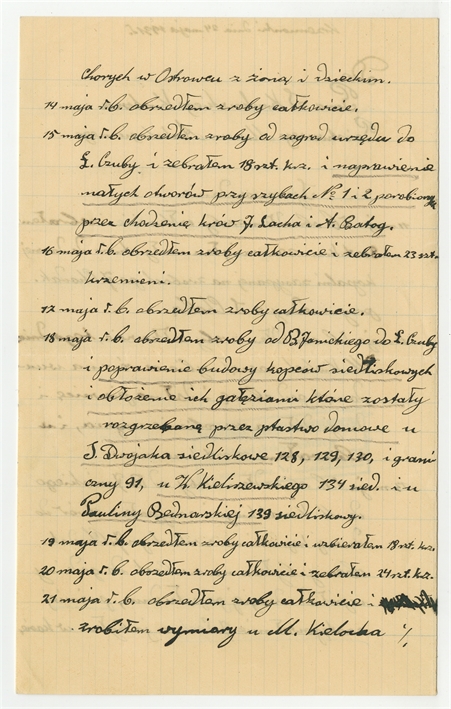 Chorych w Ostrowcu z żoną i dzieckiem.
14 maja r.b. obszedłem zroby całkowicie.
15 maja r.b. obszedłem zroby od zagród urzędu do
Ł. Czuby i zebrałem 18 szt. krz. i naprawienie
małych otworów przy szybach № 1 i 2 porobione
przez chodzenie krów J. Lacha i A. Batog.
16 maja r.b. obszedłem zroby całkowicie i zebrałem 23 szt.
krzemieni.
17 maja r.b. obszedłem zroby całkowicie.
18 maja r.b. obszedłem zroby od B. Janickiego do Ł. Czuby
i poprawienie budowy kopców siedliskowych
i obłożenie ich gałęziami które zostały
rozgrzebane przez ptastwo domowe u
J. Dwojaka siedliskowe 128, 129, 130, i grani
czny 91, u W. Kieliszewskiego 134 sied. i u
Pauliny Bednarskiej 139 siedliskowy.
19 maja r.b. obszedłem zroby całkowicie i uzbierałem 18 szt. krz.
20 maja r.b. obszedłem zroby całkowicie i zebrałem 24 szt. krz.
21 maja r.b. obszedłem zroby całkowicie i
zrobiłem wymiary u M. Kielocha ·/.